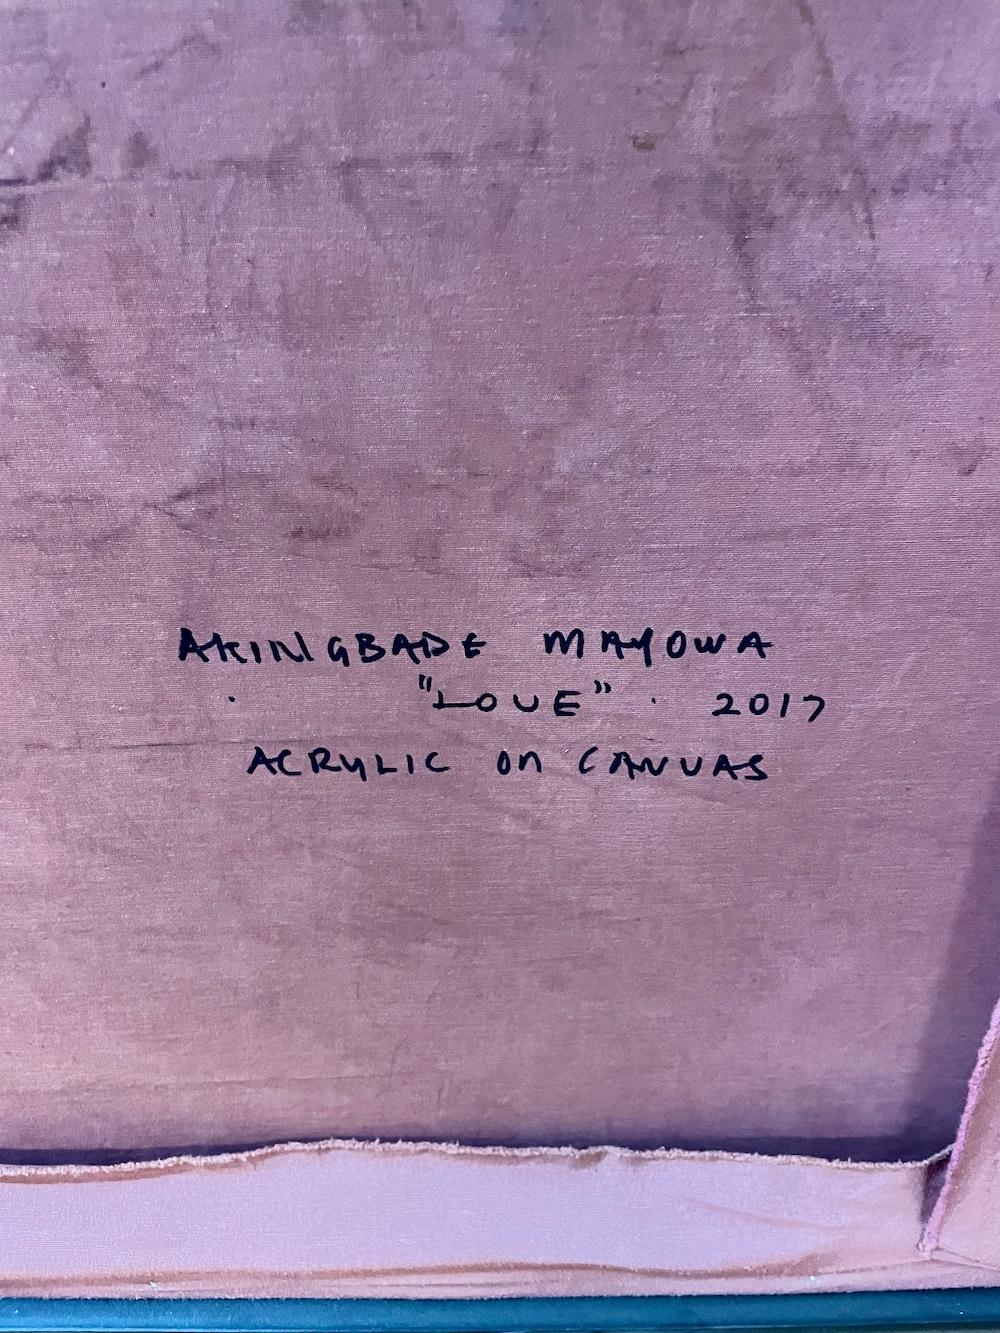 AKINGBADE MAYOWA
. "LOVE" . 2017
ACRYLIC On CANVAS